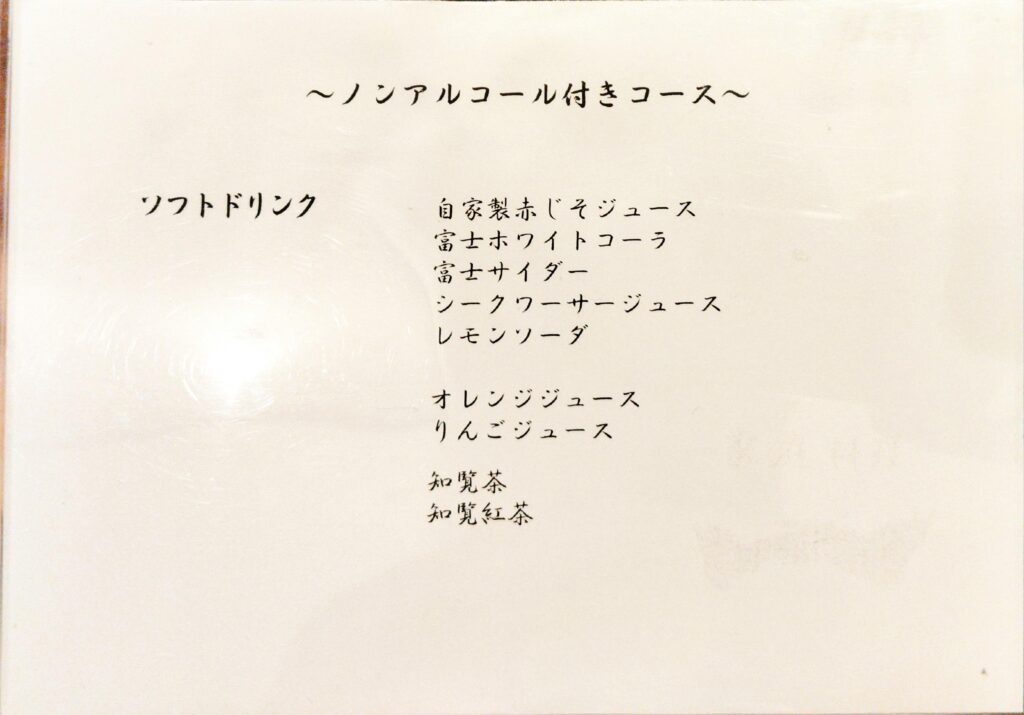 ～ノンアルコール付きコース～
ソフトドリンク
自家製赤じそジュース
富士ホワイトコーラ
富士サイダー
シークワーサージュース
レモンソーダ
オレンジジュース
りんごジュース
知覧茶
知覧紅茶